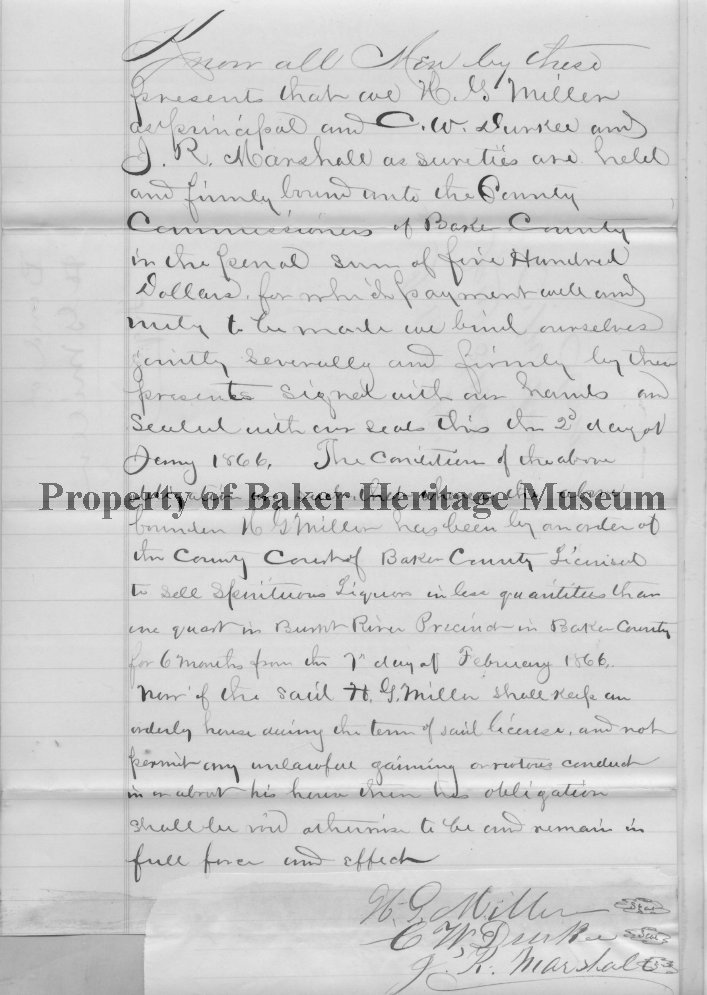 Know all Men by these
presents that we H. G. Miller
as principal and C. W. Durkee and
J. R. Marshall as sureties are held
and firmly bound unto the County
Commissioners of Baker County
in the penal sum of five Hundred
Dollars, for which payment well and
truly to be made we bind ourselves
jointly severally and firmly by these
presents signed with our hands and
Sealed with our seals this the 2d day of
1866. The Condition of the above
obligation is such that whereas the above
Property of Baker Heritage Museum
bounden H. G. Miller has been by an order of
the County Court of Baker County Licensed
to sell Spirituous Liquors in less quantities than
one quart in Burnt River Precinct in Baker County
for 6 months from the day of February 1866.
Now if the said H. G. Miller shall keep an
orderly house during the term of said license, and not
permit any unlawful gaming or riotous conduct
in or about his house then this obligation
shall be void otherwise to be and remain in
full force and effect
H. G. Miller Seal
C W Durkee Seal
J. R. Marshall Seal